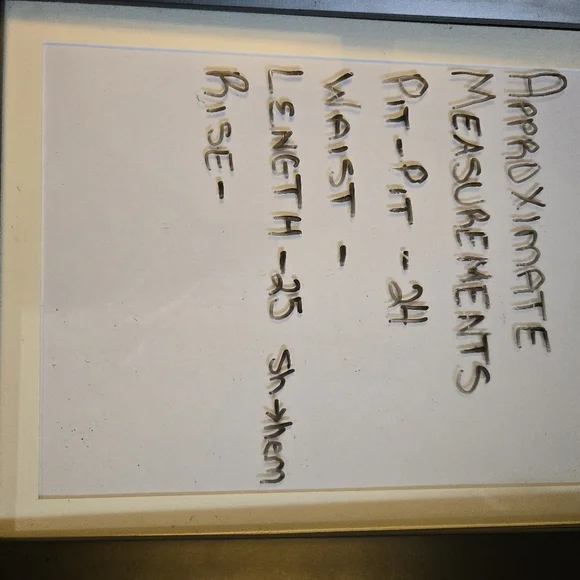 APPROXIMATE
MEASUREMENTS
PIT-PIT - 24
WAIST -
LENGTH - 25 sh→hem
RISE -